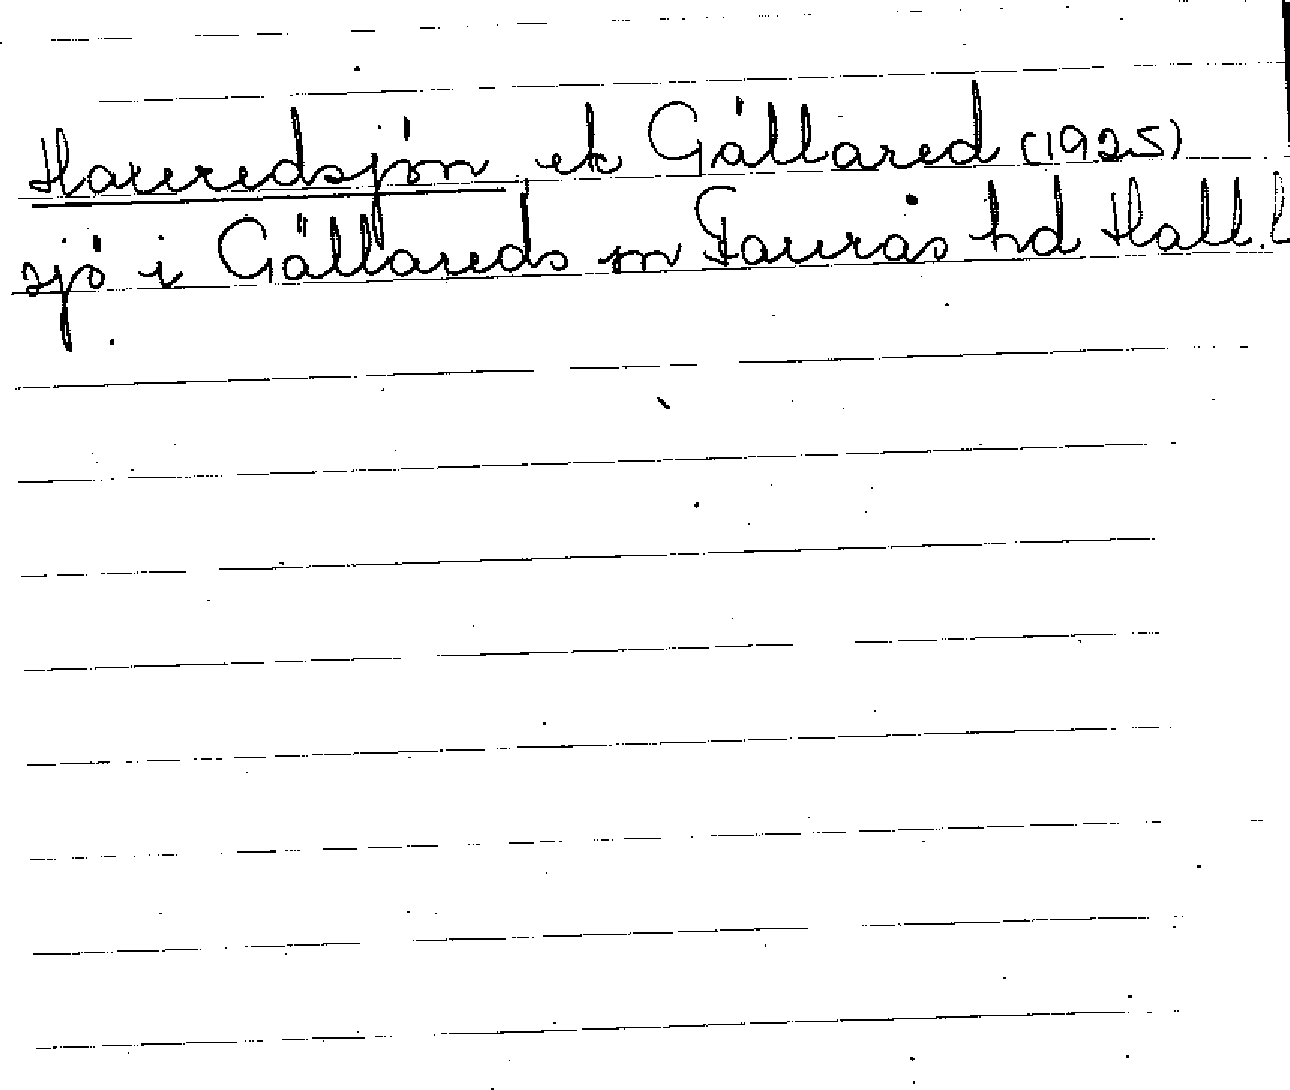 Hauredsjön ek Gällared (1925)
sjö i Gällareds sn Faurås hd Hall. l